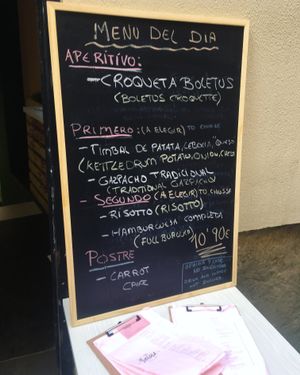 MENU DEL DIA
APERITIVO:
- CROQUETA BOLETUS
(BOLETUS CROQUETTE)
PRIMERO: (A ELEGIR) TO CHOOSE
- TIMBAL DE PATATA, CEBOLLA, QUESO
(KETTLEDRUM POTATO, ONION, CHEESE
- GAZPACHO TRADICIONAL
(TRADITIONAL GAZPACHO)
- SEGUNDO: (A ELEGIR) TO CHOOSE
- RISOTTO (RISOTTO)
- HAMBURGUESA COMPLETA
(FULL BURGUER)
10'90€
POSTRE
- CARROT
CAKE